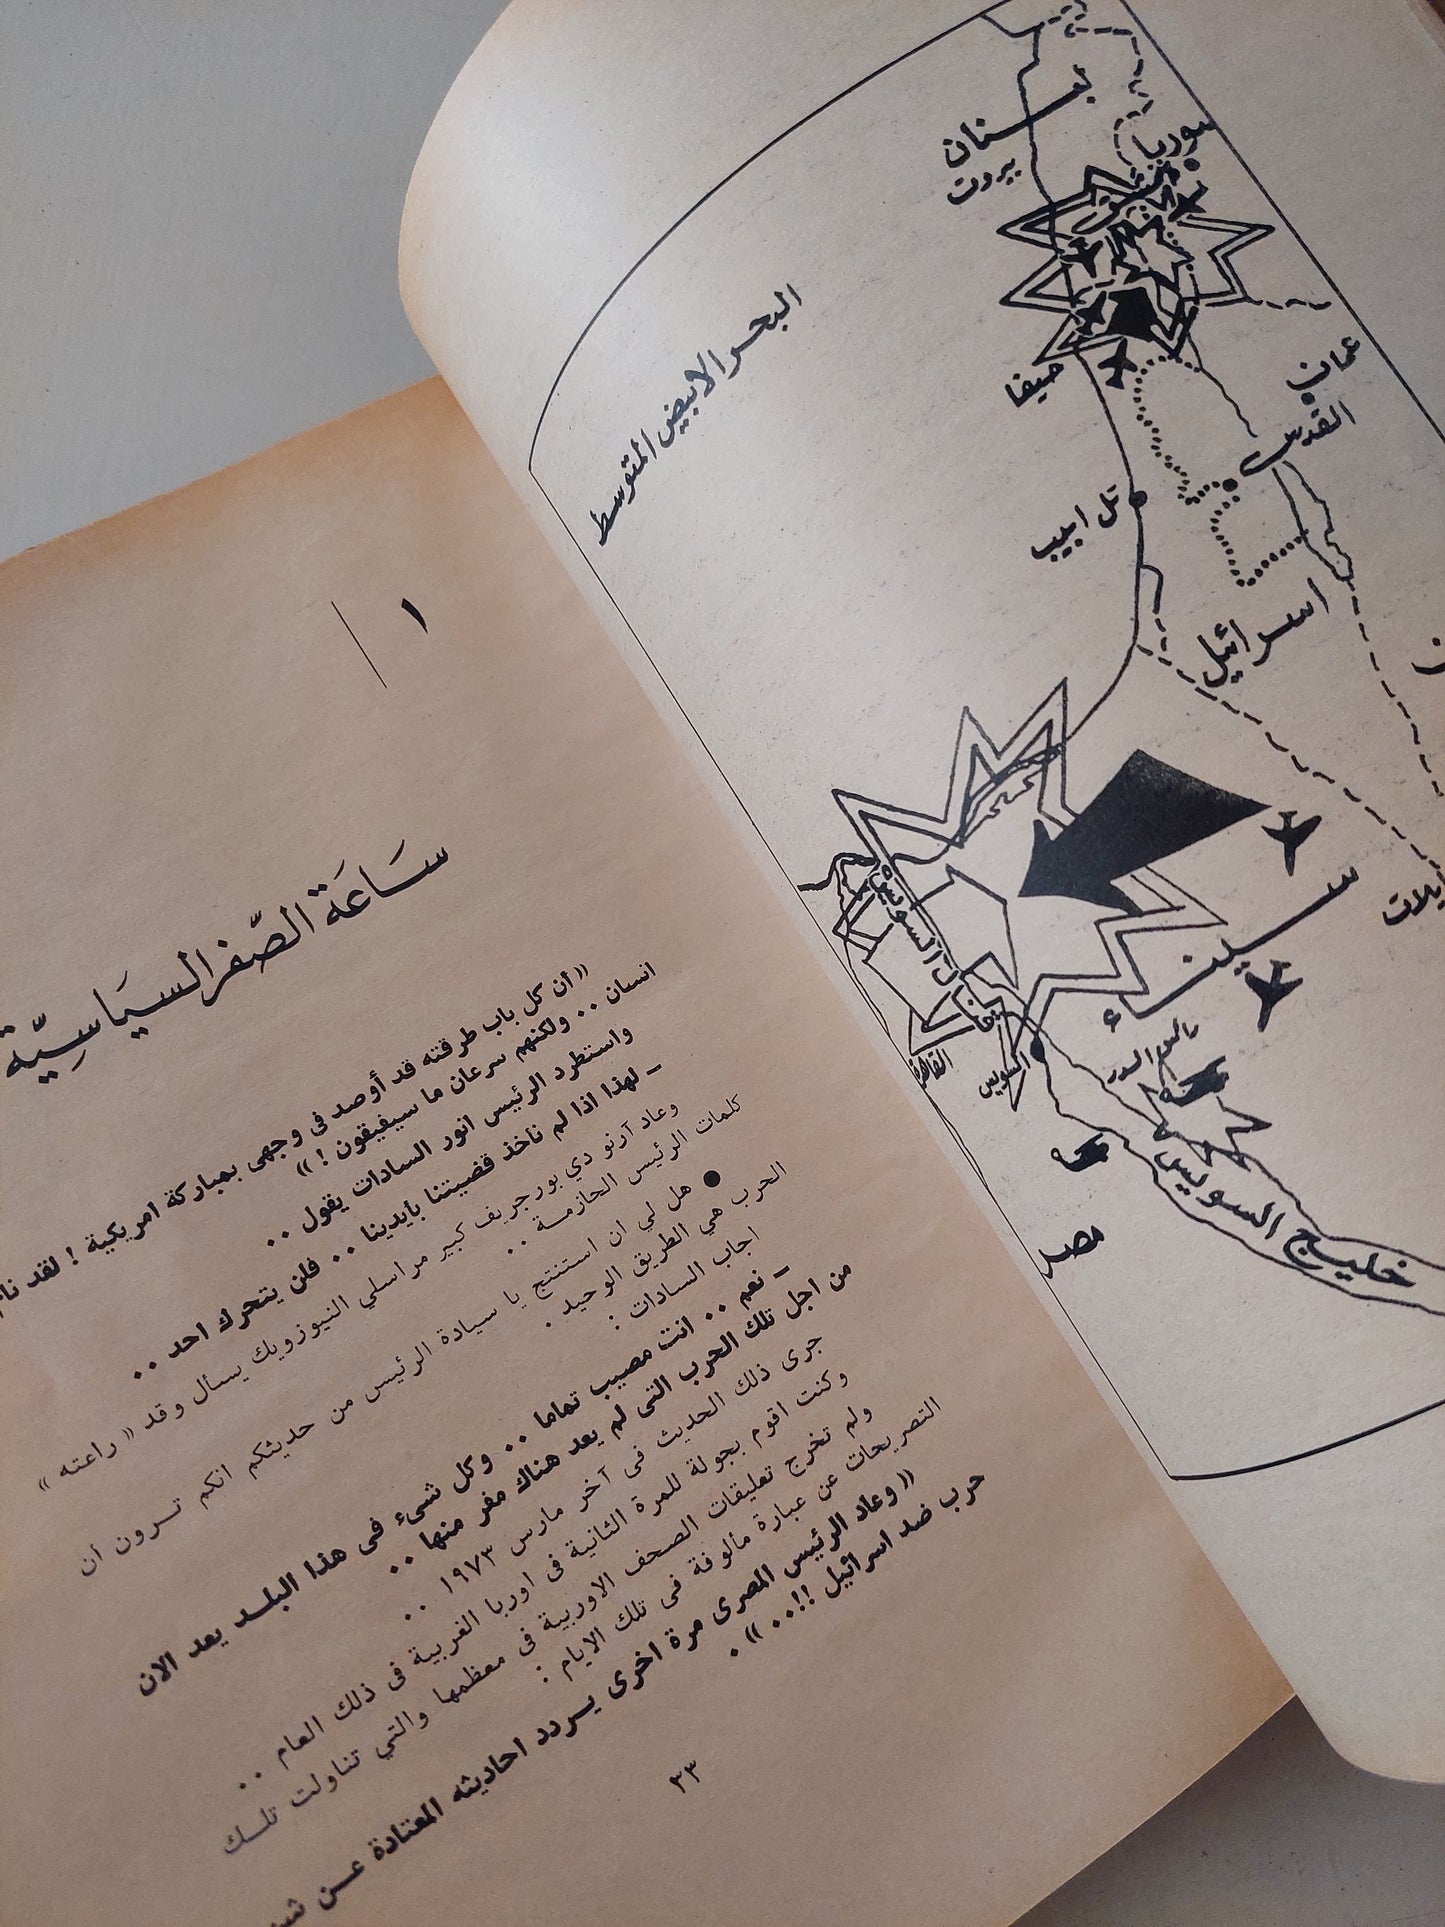 لبنان
بيروت
سوريا
دمشق
البحر الابيض المتوسط
حيفا
عمان
القدس
تل ابيب
اسرائيل
ايلات
سيناء
السويس
القاهرة
خليج السويس
مصر
١
سَاعَة الصّفر السيَاسِيّة
« أن كل باب طرقته قد أوصد فى وجهى بمباركة امريكية ! لقد نام
انسان .. ولكنهم سرعان ما سيفيقون ! »
واستطرد الرئيس انور السادات يقول ..
ـ لهذا اذا لم ناخذ قضيتنا بايدينا .. فلن يتحرك احد ..
وعاد آرنو دي بورجريف كبير مراسلي النيوزويك يسأل وقد « راعته »
كلمات الرئيس الحازمة ..
● هل لي ان استنتج يا سيادة الرئيس من حديثكم انكم ترون ان
الحرب هي الطريق الوحيد .
اجاب السادات :
ـ نعم .. انت مصيب تماما .. وكل شىء فى هذا البلد يعد الان
من اجل تلك الحرب التى لم يعد هناك مفر منها ..
جرى ذلك الحديث فى آخر مارس ١٩٧٣ ..
وكنت اقوم بجولة للمرة الثانية فى اوربا الغربية فى ذلك العام ..
ولم تخرج تعليقات الصحف الاوربية فى معظمها والتي تناولت تلك
التصريحات عن عبارة مألوفة فى تلك الايام :
« وعاد الرئيس المصرى مرة اخرى يردد احاديثه المعتادة عن شن
حرب ضد اسرائيل !!.. » .
٣٣